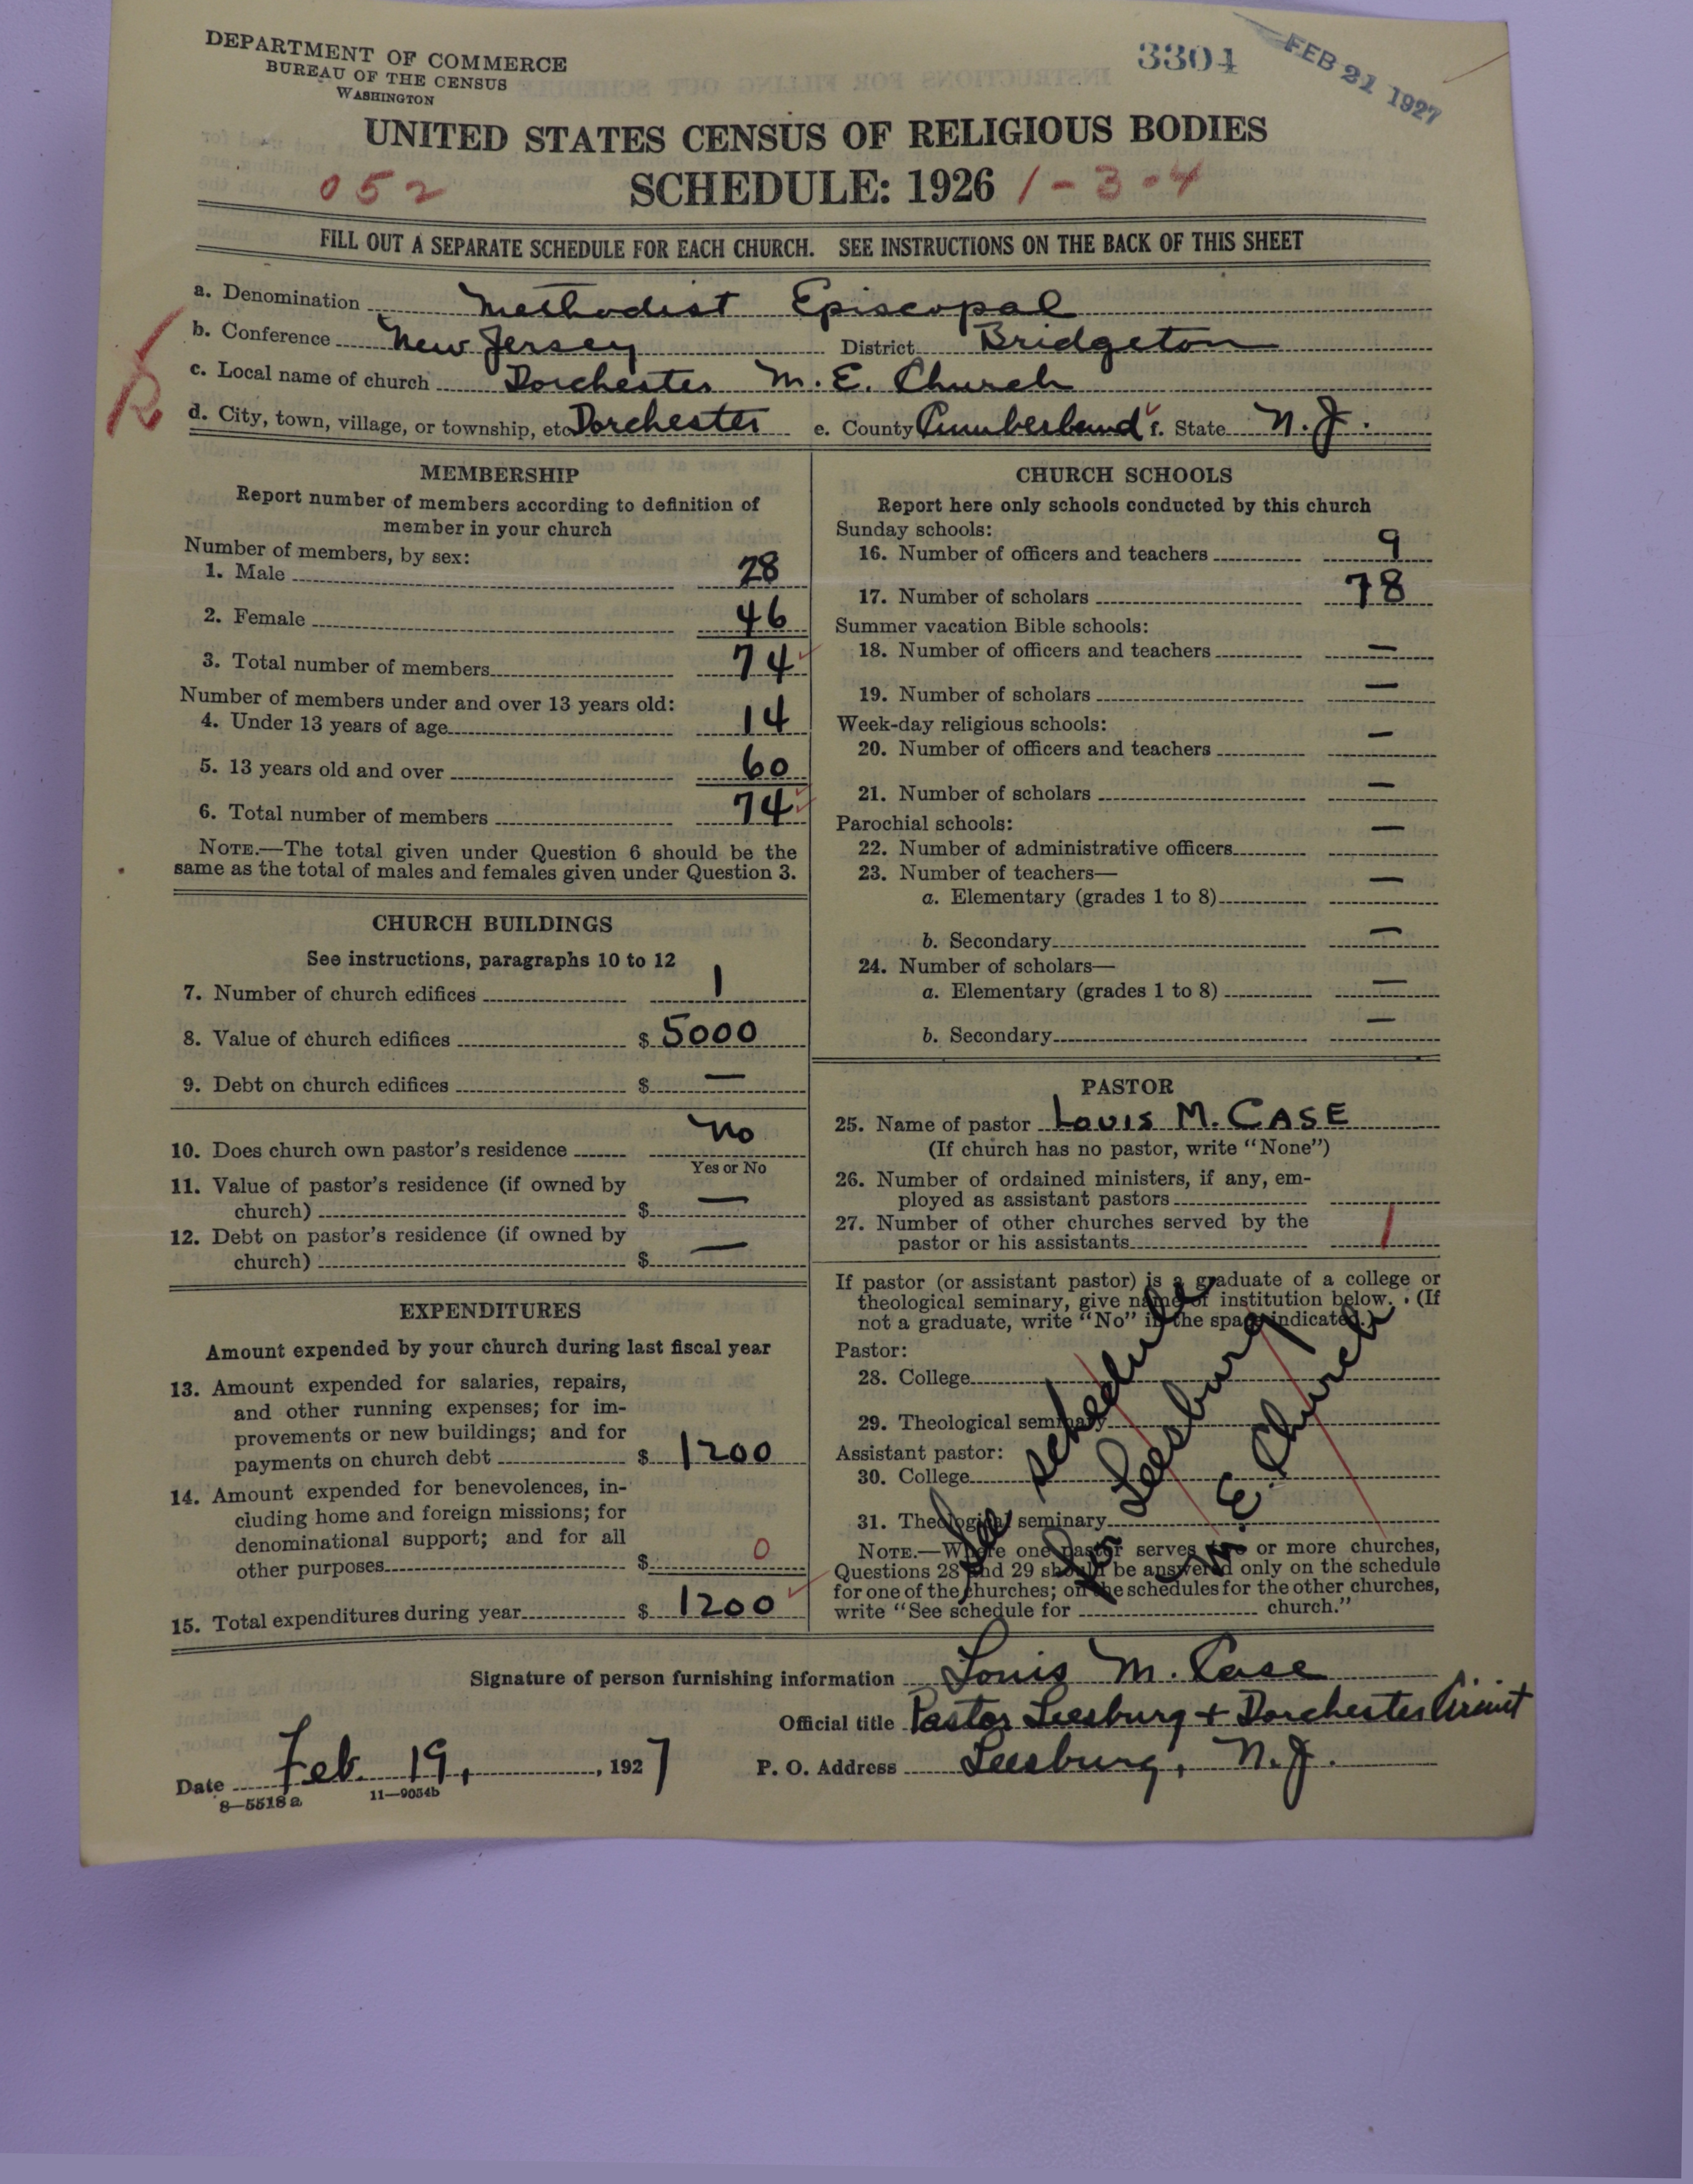 DEPARTMENT OF COMMERCE
BUREAU OF THE CENSUS
WASHINGTON
3304
FEB 21 1927
UNITED STATES CENSUS OF RELIGIOUS BODIES
052 SCHEDULE: 1926 1-3-4
FILL OUT A SEPARATE SCHEDULE FOR EACH CHURCH. SEE INSTRUCTIONS ON THE BACK OF THIS SHEET
a. Denomination Methodist Episcopal
b. Conference New Jersey District Bridgeton
c. Local name of church Dorchester M. E. Church
d. City, town, village, or township, etc Dorchester e. County Cumberland f. State N.J.
MEMBERSHIP
Report number of members according to definition of
member in your church
Number of members, by sex:
1. Male 28
2. Female 46
3. Total number of members 74
Number of members under and over 13 years old:
4. Under 13 years of age 14
5. 13 years old and over 60
6. Total number of members 74
NOTE.—The total given under Question 6 should be the
same as the total of males and females given under Question 3.
CHURCH BUILDINGS
See instructions, paragraphs 10 to 12
7. Number of church edifices 1
8. Value of church edifices $ 5000
9. Debt on church edifices $ —
10. Does church own pastor's residence No
Yes or No
11. Value of pastor's residence (if owned by
church) $ —
12. Debt on pastor's residence (if owned by
church) $ —
EXPENDITURES
Amount expended by your church during last fiscal year
13. Amount expended for salaries, repairs,
and other running expenses; for im-
provements or new buildings; and for
payments on church debt $ 1200
14. Amount expended for benevolences, in-
cluding home and foreign missions; for
denominational support; and for all
other purposes $ 0
15. Total expenditures during year $ 1200
CHURCH SCHOOLS
Report here only schools conducted by this church
Sunday schools:
16. Number of officers and teachers 9
17. Number of scholars 78
Summer vacation Bible schools:
18. Number of officers and teachers —
19. Number of scholars —
Week-day religious schools:
20. Number of officers and teachers —
21. Number of scholars —
Parochial schools:
22. Number of administrative officers —
23. Number of teachers—
a. Elementary (grades 1 to 8) —
b. Secondary —
24. Number of scholars—
a. Elementary (grades 1 to 8) —
b. Secondary —
PASTOR
25. Name of pastor LOUIS M. CASE
(If church has no pastor, write "None")
26. Number of ordained ministers, if any, em-
ployed as assistant pastors
27. Number of other churches served by the
pastor or his assistants 1
If pastor (or assistant pastor) is a graduate of a college or
theological seminary, give name of institution below. (If
not a graduate, write "No" in the space indicated.)
Pastor:
28. College
29. Theological seminary
Assistant pastor:
30. College
31. Theological seminary
See schedule
for Leesburg
M. E. Church
NOTE.—Where one pastor serves two or more churches,
Questions 28 and 29 should be answered only on the schedule
for one of the churches; on the schedules for the other churches,
write "See schedule for church."
Signature of person furnishing information Louis M. Case
Official title Pastor Leesburg + Dorchester Circuit
Date Feb. 19, 1927 P. O. Address Leesburg, N.J.
8—5518 a 11—9034b